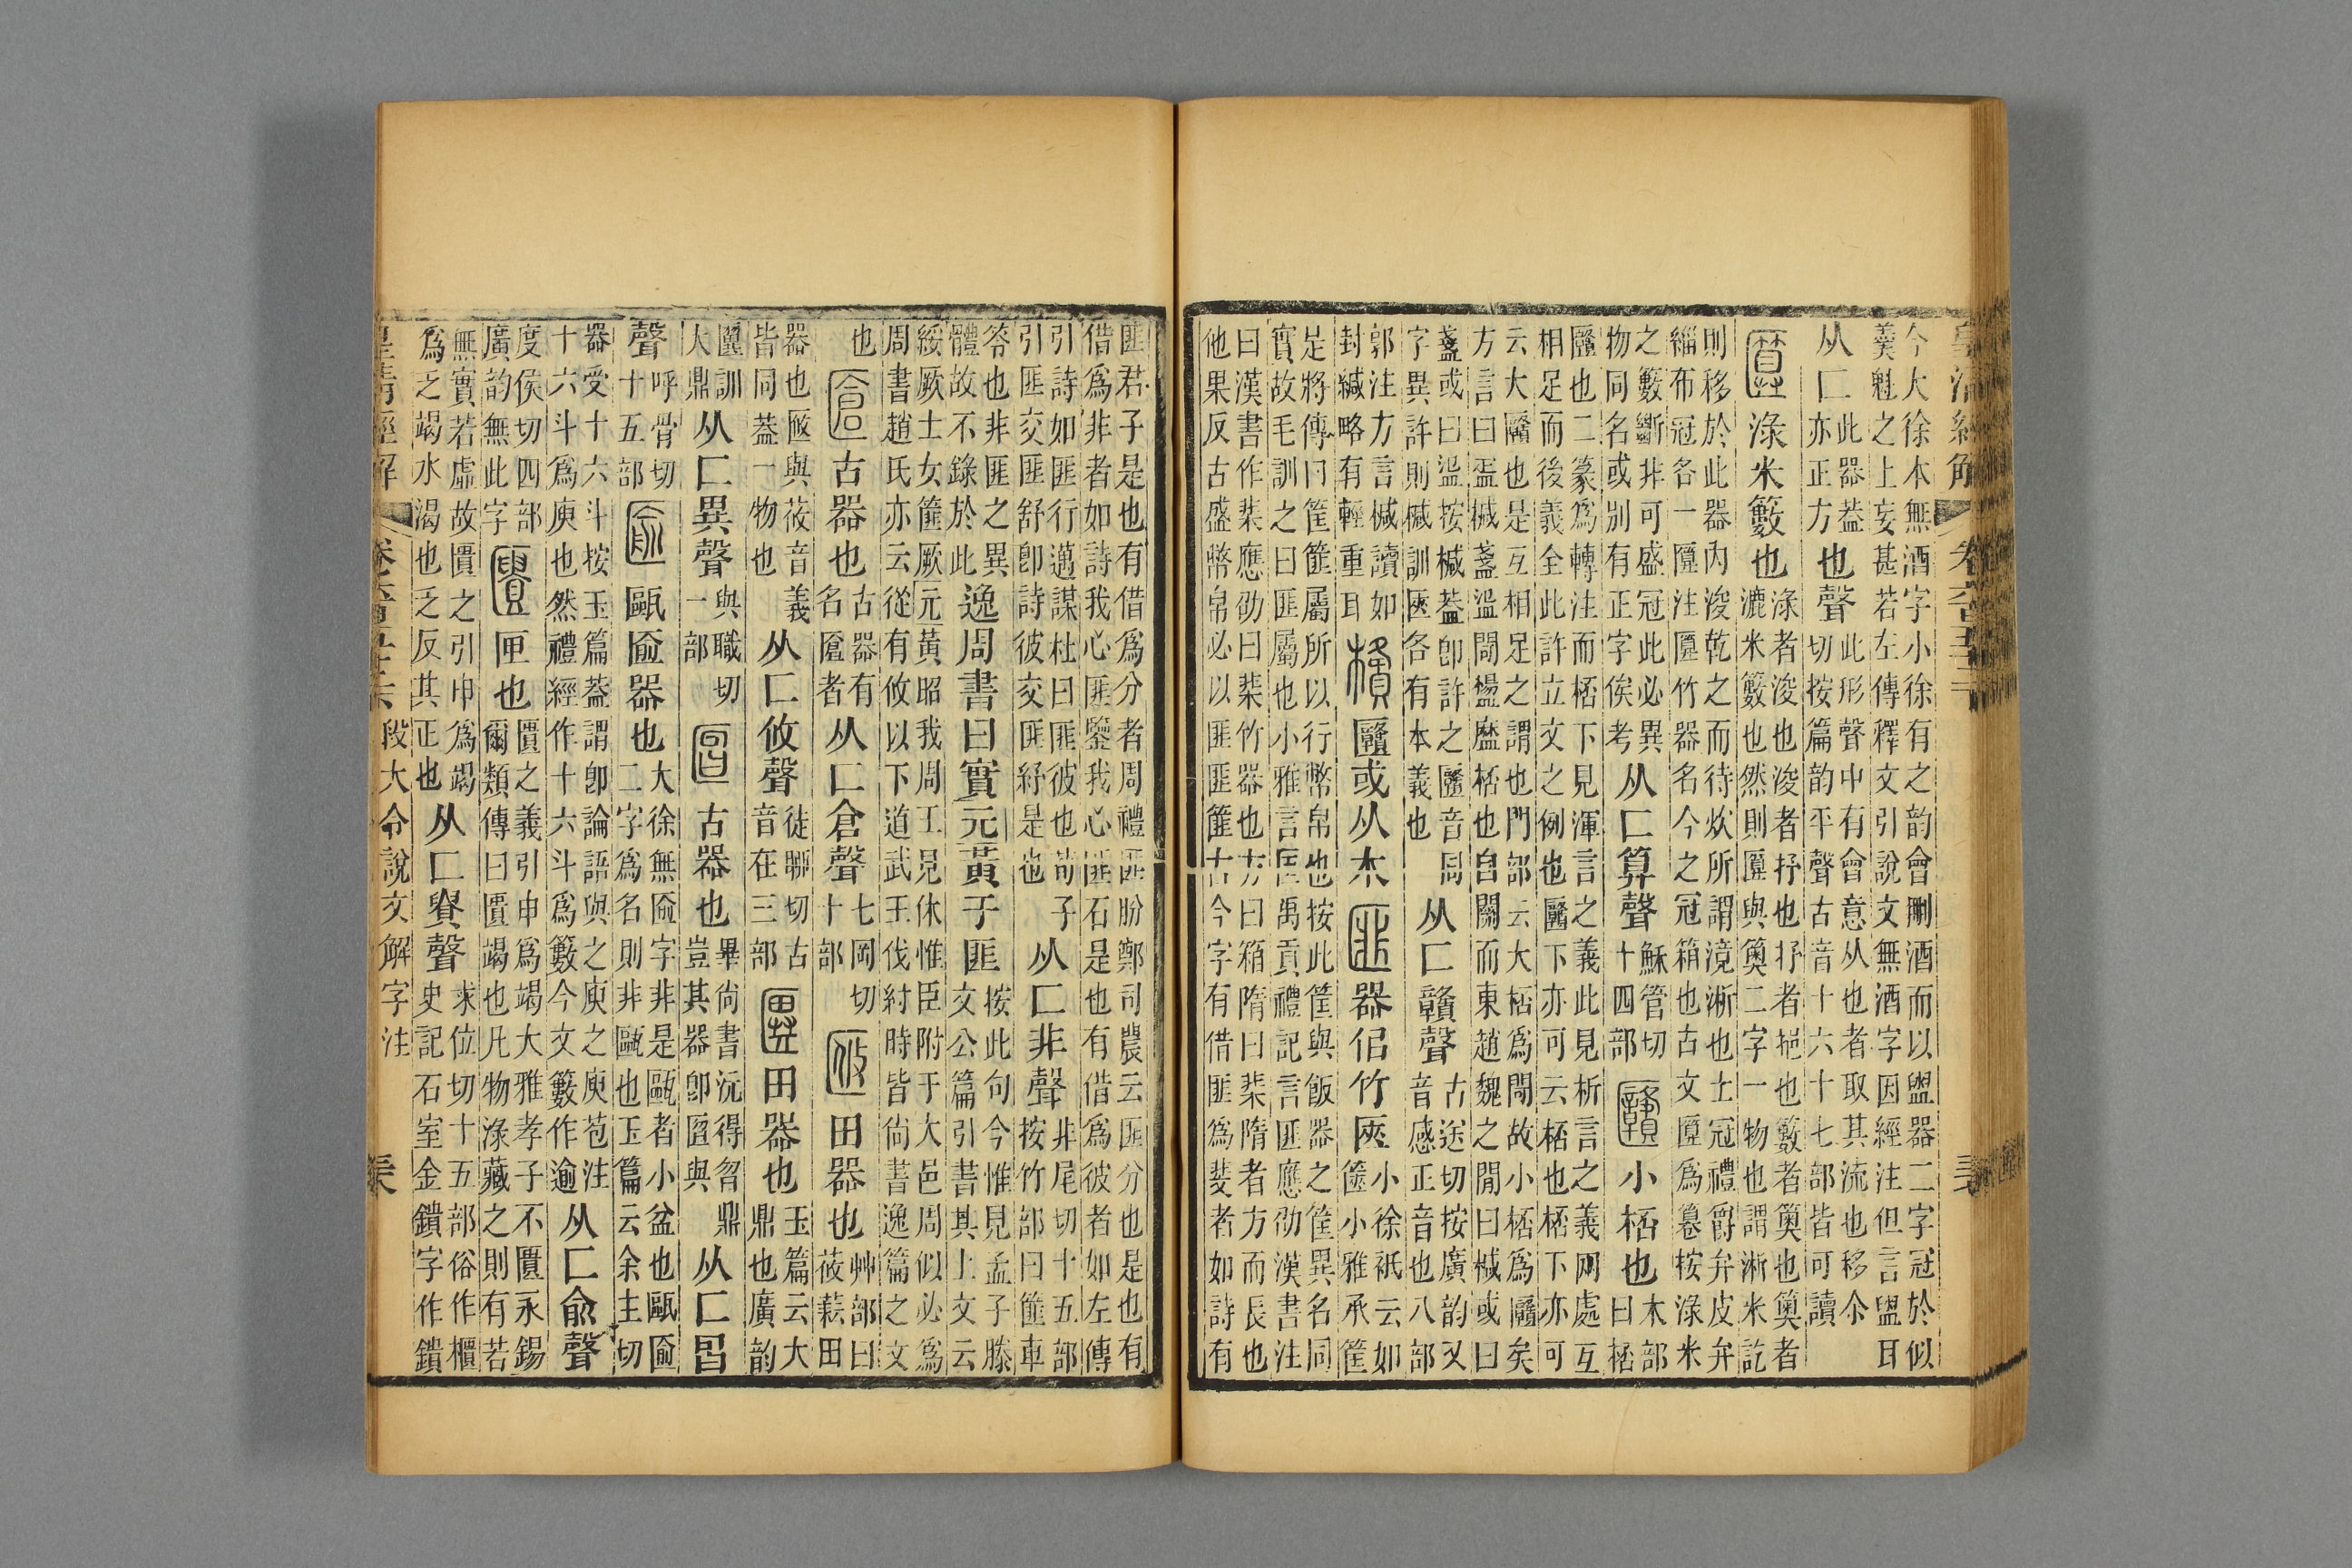 今大徐本無酒字小徐有之韵會刪酒而以盥器二字冠於似
羹魁之上妄甚若左傳釋文引說文無酒字因經注但言盥耳
从匚此器葢亦正方也聲此形聲中有會意从也者取其流也移尒切按篇韵平聲古音十六十七部皆可讀
匴淥米籔也淥者浚也浚者抒也抒者挹也籔者䉛也䉛者漉米籔也然則匴與䉛二字一物也謂淅米訖
則移於此器內浚乾之而待炊所謂滰淅也士冠禮爵弁皮弁
緇布冠各一匴注匴竹器名今之冠箱也古文匴爲篹按淥米
之籔斷非可盛冠此必異物同名或別有正字俟考从匚算聲穌管切十四部𠤁小桮也木部曰桮
𠤁也二篆爲轉注而桮下見渾言之義此見析言之義网處互
相足而後義全此許立文之例也𠤁下亦可云桮也桮下亦可
云大𠤁也是互相足之謂也門部云大桮爲閜故小桮爲𠤁矣
方言曰盃椷盞㿿閜桮也自關而東趙魏之閒曰椷或曰
盞或曰㿿按椷葢卽許之𠤁音同字異許則椷訓匧各有本義也从匚贛聲古送切按廣韵又音感正音也八部
郭注方言椷讀如封緘略有輕重耳𠤁或从木匪器侣竹匧小徐衹云如篋小雅承筐
是將傳曰筐篚屬所以行幣帛也按此筐與飯器之筐異名同
實故毛訓之曰匪屬也小雅言匡禹貢禮記言匪應劭漢書注
曰漢書作棐應劭曰棐竹器也方曰箱隋曰棐隋者方而長也
他果反古盛幣帛必以匪匪篚古今字有借匪爲斐者如詩有
匪君子是也有借爲分者周禮匪頒鄭司農云匪分也是也有
借爲非者如詩我心匪鑒我心匪石是也有借爲彼者如左傳
引詩如匪行邁謀杜曰匪彼也荀子引匪交匪舒卽詩彼交匪紓是也从匚非聲非尾切十五部按竹部曰篚車
笭也非匪之異體故不錄於此逸周書曰實元黃于匪按此句今惟見孟子滕文公篇引書其上文云
綏厥士女篚厥元黃昭我周王見休惟臣附于大邑周似必爲
周書趙氏亦云從有攸以下道武王伐紂時皆尙書逸篇之文
也匫古器也古器有名匫者从匚倉聲七岡切十部匘田器也艸部曰莜䒳田
器也匧與莜音義皆同葢一物也从匚攸聲徒聊切古音在三部𠥦田器也玉篇云大鼎也廣韵
𠥦訓大鼎从匚異聲與職切一部匫古器也畢尙書沅得曶鼎豈其器卽匫與从匚曶
聲呼骨切十五部匬甌匬器也大徐無匬字非是甌者小盆也甌匬二字爲名則非甌也玉篇云余主切
器受十六斗按玉篇葢謂卽論語與之庾之庾苞注
十六斗爲庾也然禮經作十六斗爲籔今文籔作逾从匚俞聲
度侯切四部廣韵無此字匱匣也匱之義引申爲竭大雅孝子不匱永錫爾類傳曰匱竭也凡物淥藏之則有若
無實若虛故匱之引申爲竭爲乏竭水渴也乏反其正也从匚貴聲求位切十五部俗作櫃史記石室金鐀字作鐀
皇淸經解
段大令說文解字注